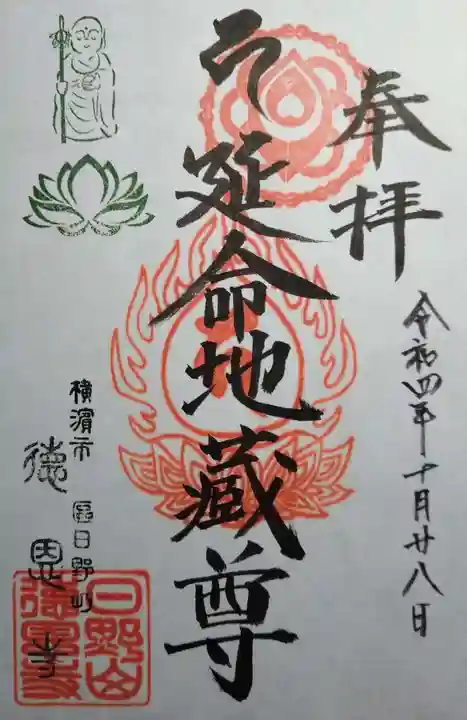 奉拝
令和四年十月廿八日
延命地蔵尊
横濱市 區日野町
徳恩寺
日野山
徳恩寺